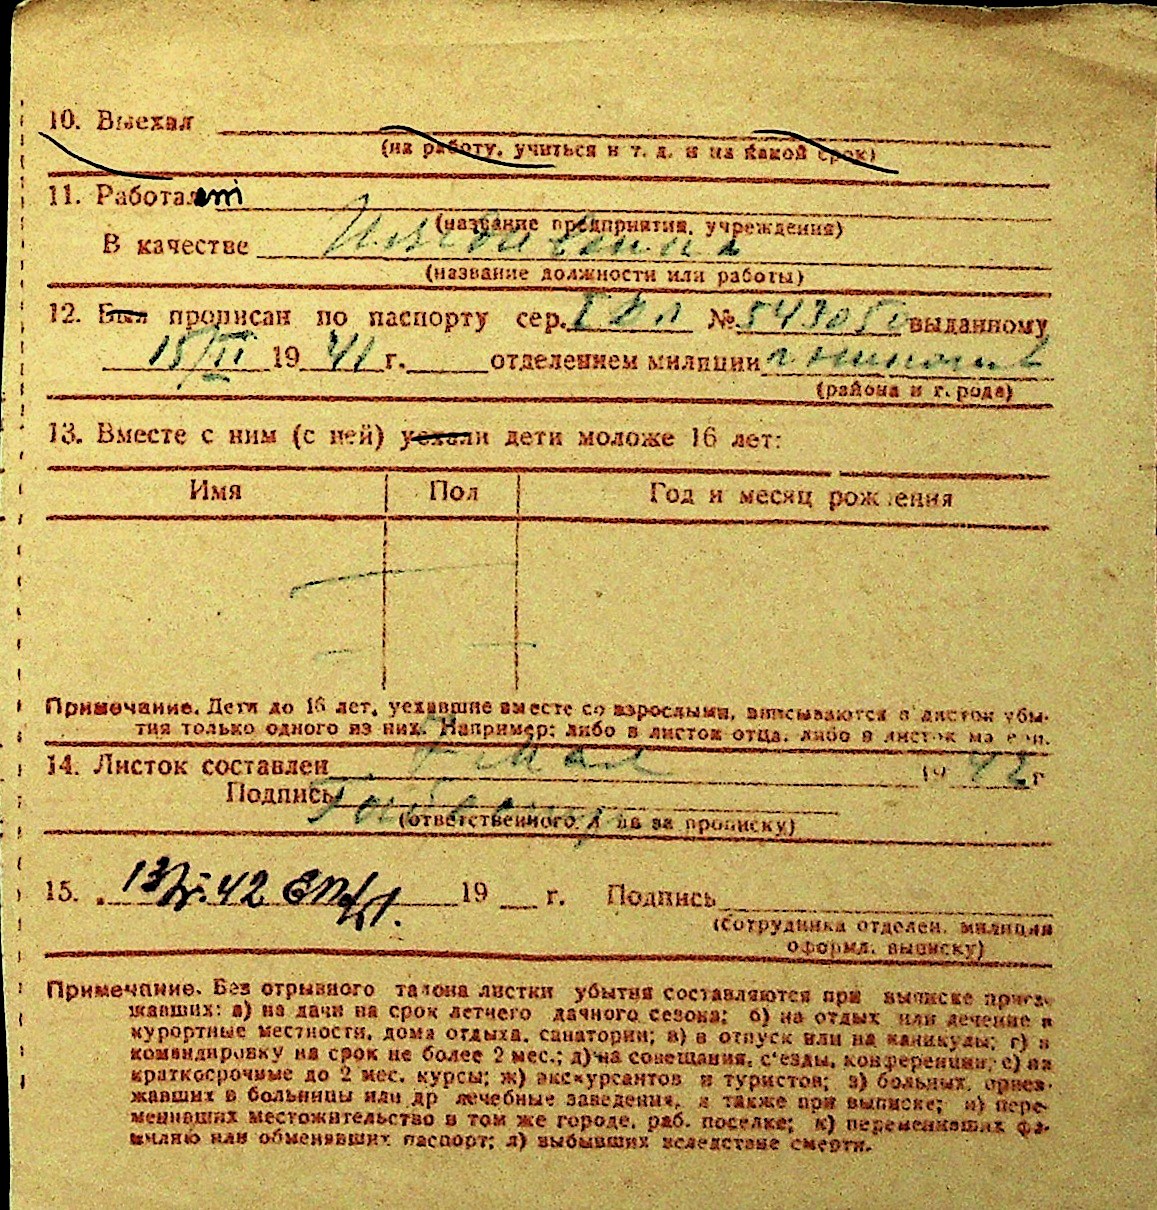 10. Выехал
(на работу, учиться и т. д. и на какой срок)
11. Работает
(название предприятия, учреждения)
В качестве Иждивенка
(название должности или работы)
12. Был прописан по паспорту сер. № 543050 выданному
15/II 1941 г. отделением милиции
(района и города)
13. Вместе с ним (с ней) уехали дети моложе 16 лет:
Имя Пол Год и месяц рождения
Примечание. Дети до 16 лет, уехавшие вместе со взрослыми, вписываются в листок убы-
тия только одного из них. Например: либо в листок отца, либо в листок матери.
14. Листок составлен мая 1942 г
Подпись
(ответственного лица за прописку)
15. 13 42 19 г. Подпись
(сотрудника отделен. милиции
оформл. выписку)
Примечание. Без отрывного талона листки убытия составляются при выписке приез-
жавших: а) на дачи на срок летнего дачного сезона; б) на отдых или лечение в
курортные местности, дома отдыха, санатории; в) в отпуск или на каникулы; г) в
командировку на срок не более 2 мес.; д) на совещания, с'езды, конференции; е) на
краткосрочные до 2 мес. курсы; ж) экскурсантов и туристов; з) больных, приез-
жавших в больницы или др лечебные заведения, а также при выписке; и) пере-
менивших местожительство в том же городе, раб. поселке; к) переменивших фа-
милию или обменявших паспорт; л) выбывших вследствие смерти.